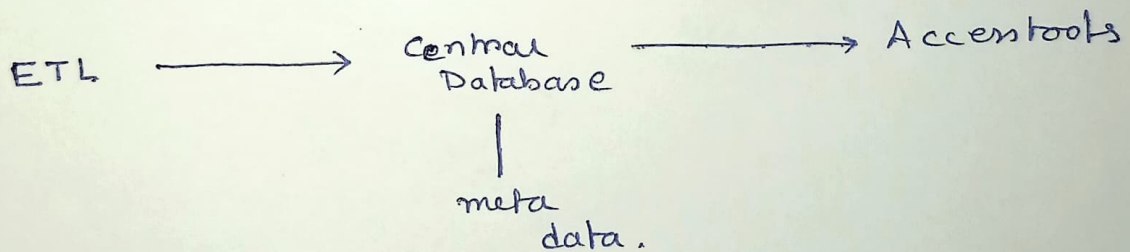 ETL
Central
Database
Access tools
meta
data.